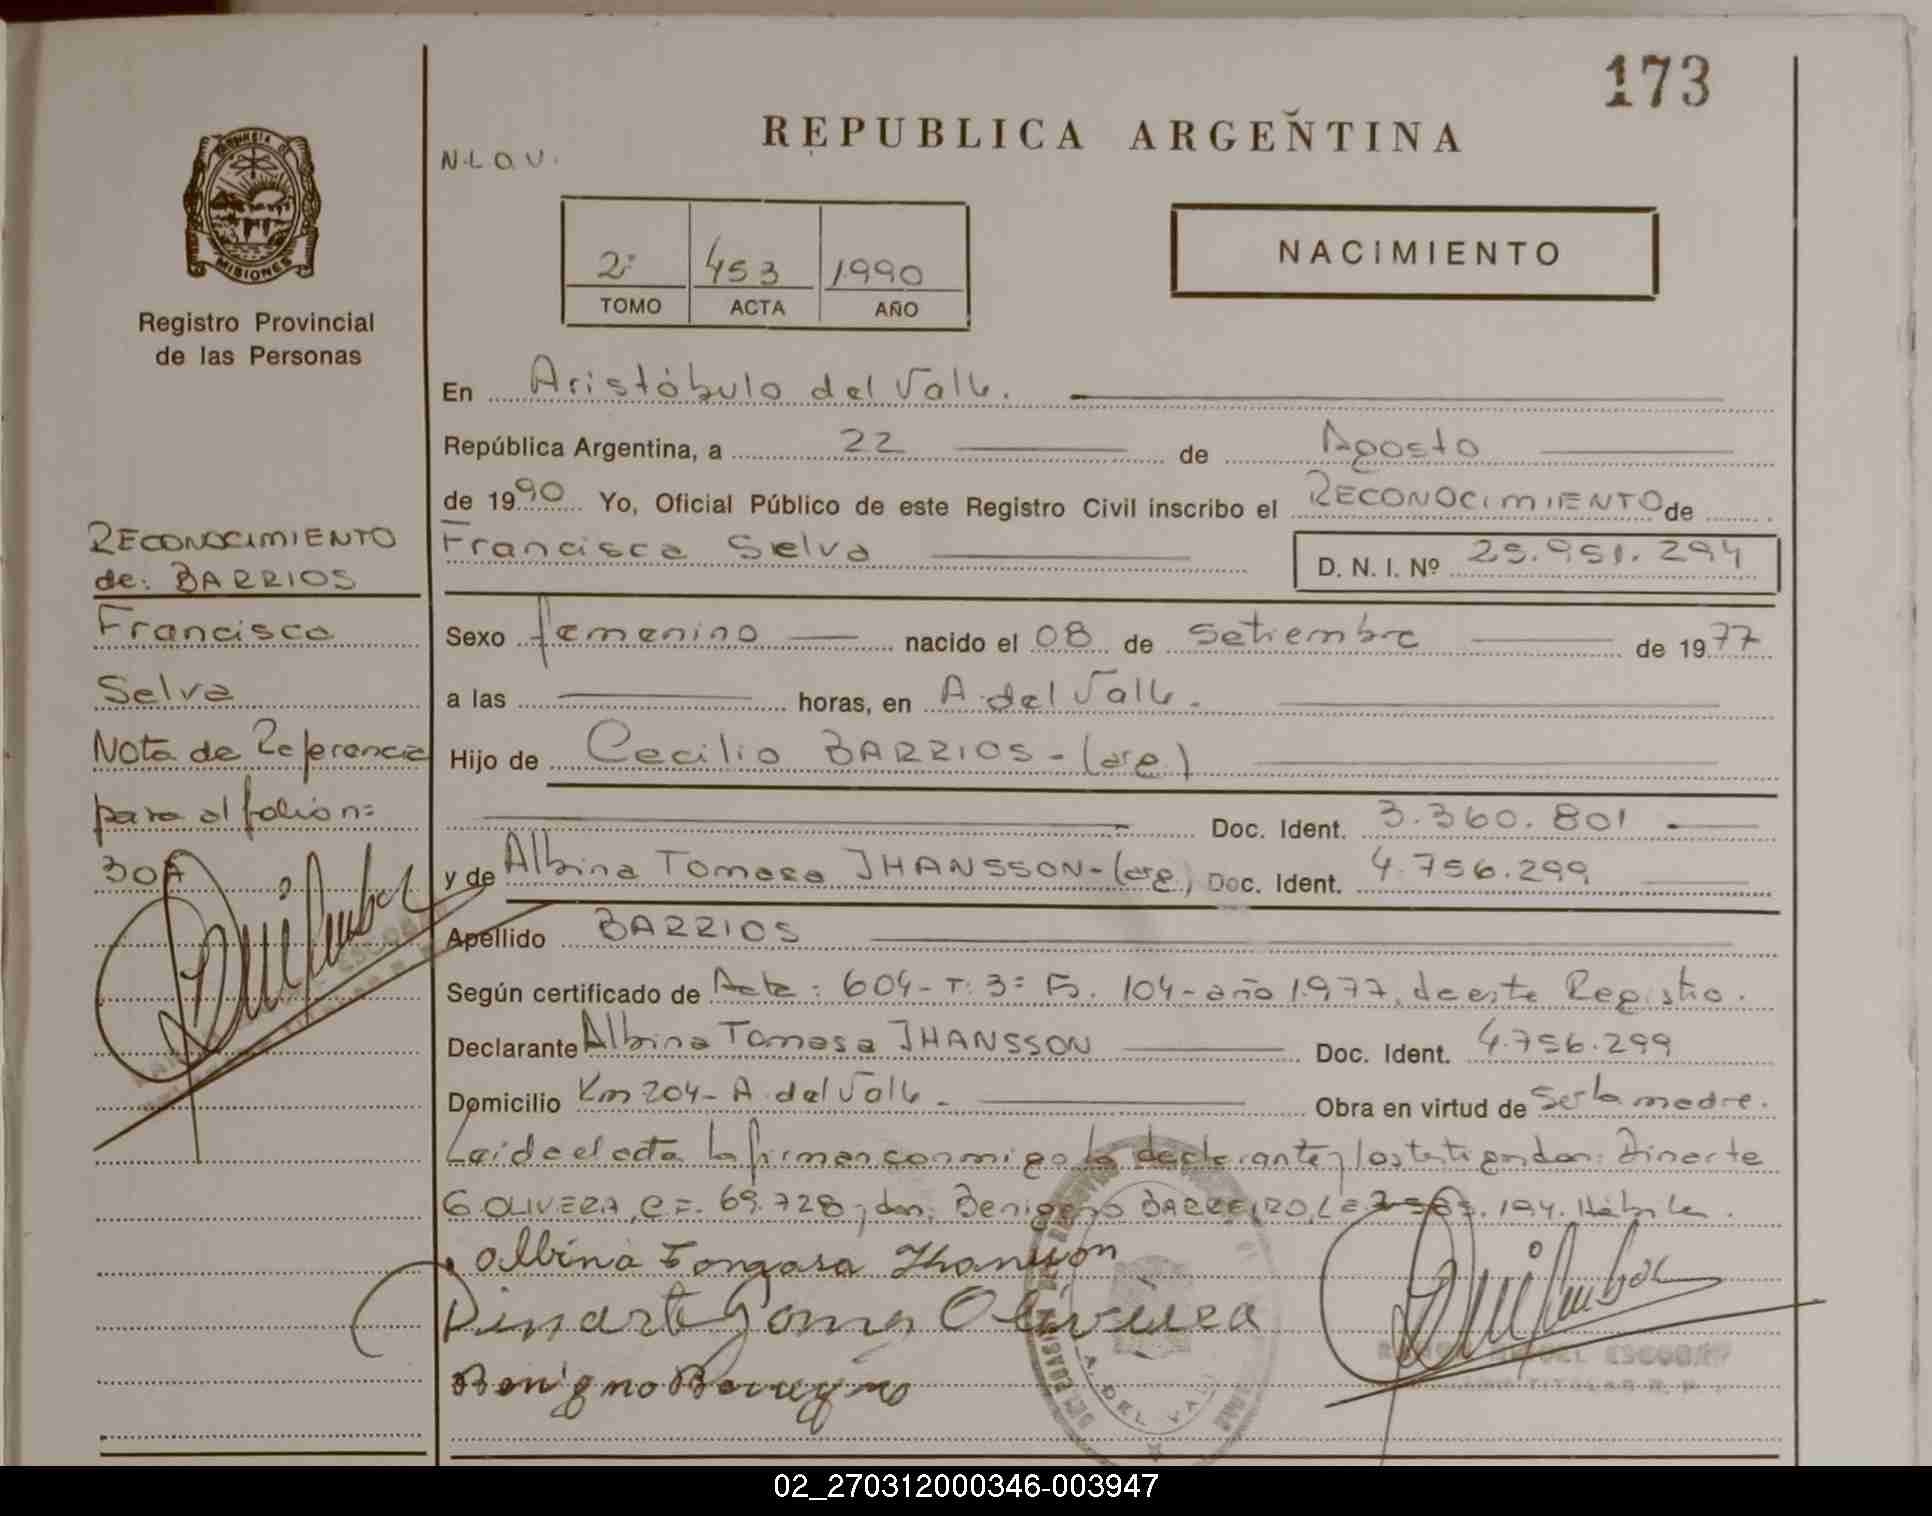 173
REPUBLICA ARGENTINA
N.L.O.V.
PROVINCIA DE
MISIONES
Registro Provincial
de las Personas
2º 453 1990
TOMO ACTA AÑO
NACIMIENTO
En Aristóbulo del Valle.
República Argentina, a 22 de Agosto
de 1990 Yo, Oficial Público de este Registro Civil inscribo el RECONOCIMIENTO de
Francisca Selva D. N. I. Nº 25.951.294
RECONOCIMIENTO
de: BARRIOS
Francisca
Selva
Nota de Referencia
para al folio n=
304
Sexo femenino nacido el 08 de Setiembre de 1977
a las horas, en A. del Valle.
Hijo de Cecilio BARRIOS - (arg.)
Doc. Ident. 3.360.801
y de Albina Tomasa JHANSSON - (arg.) Doc. Ident. 4.756.299
Apellido BARRIOS
Según certificado de Acta: 604 - T. 3= F. 104 - año 1.977, de este Registro.
Declarante Albina Tomasa JHANSSON Doc. Ident. 4.756.299
Domicilio Km 204 - A. del Valle - Obra en virtud de Ser la madre.
Leída el acta la firman conmigo la declarante y los testigos don: Dinarte
G. OLIVERA, C=. 69.728, don: Benigno BARREIRO, L= .194. Hábiles.
Albina Tomasa Jhansson
Dinarte Gomes Oliveira
Benigno
A. DEL VALLE
ESCOBAR
TITULAR R. P.
02_270312000346-003947